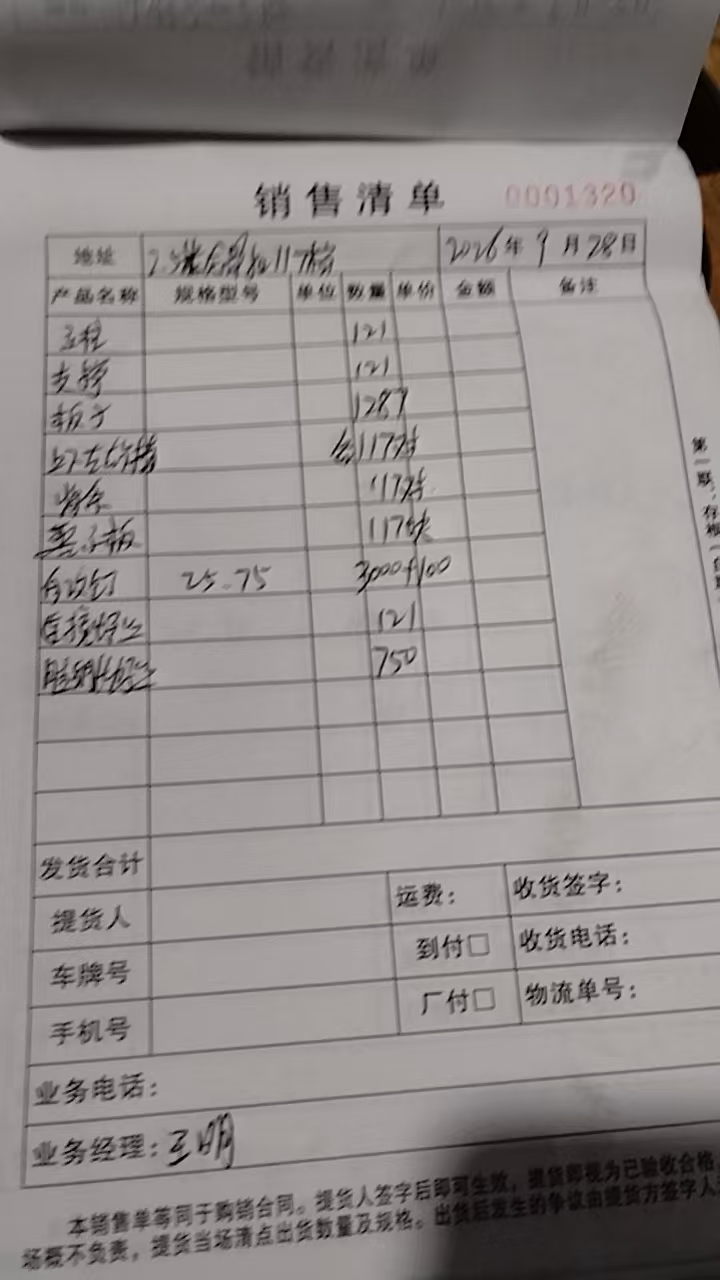 销售清单 0001320
地址 2026年9月28日
产品名称 规格型号 单位 数量 单价 金额 备注
立柱 121
支撑 121
板子 1287
117对
117对
117块
自攻钉 25-75 3000+100
121
750
发货合计
提货人 运费: 收货签字:
车牌号 到付□ 收货电话:
手机号 厂付□ 物流单号:
业务电话:
业务经理: 王明
本销售单等同于购销合同。提货人签字后即可生效，提货即视为已验收合格
场概不负责，提货当场清点出货数量及规格。出货后发生的争议由提货方签字人
第一联：存根